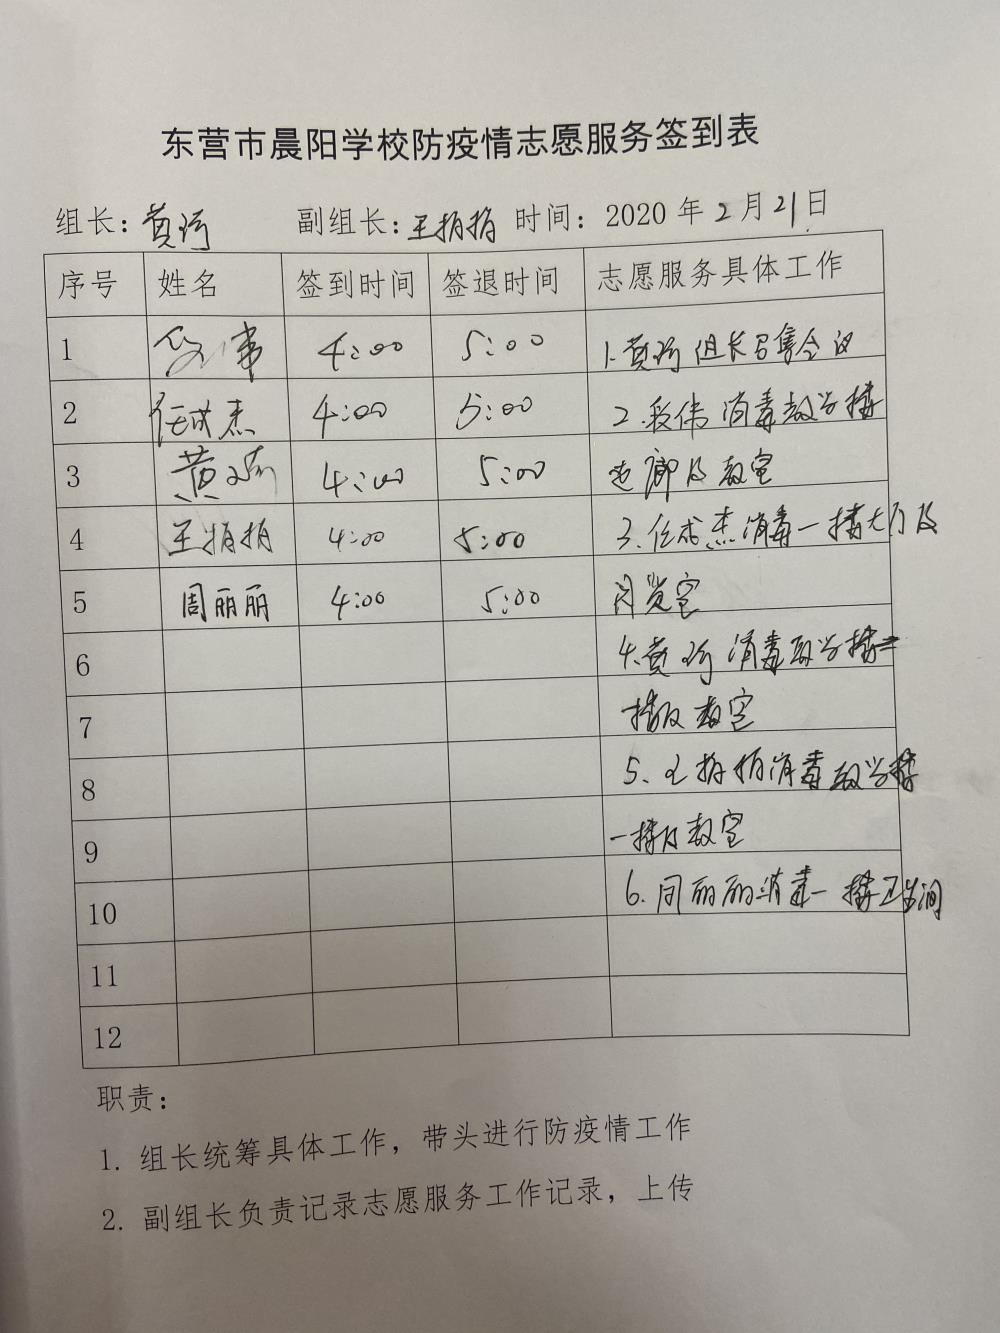 东营市晨阳学校防疫情志愿服务签到表
组长：黄珂 副组长：王娟娟 时间：2020年2月21日
序号 姓名 签到时间 签退时间 志愿服务具体工作
1 4:00 5:00 1.黄珂组长召集会议
2 任成杰 4:00 5:00 2.段伟消毒教学楼
3 黄珂 4:00 5:00 走廊及教室
4 王娟娟 4:00 5:00 3.任成杰消毒一楼大厅及
5 周丽丽 4:00 5:00 阅览室
6 4.黄珂消毒教学楼二
7 楼及教室
8 5、王娟娟消毒教学楼
9 一楼及教室
10 6.周丽丽消毒一楼卫生间
11
12
职责：
1. 组长统筹具体工作，带头进行防疫情工作
2. 副组长负责记录志愿服务工作记录，上传